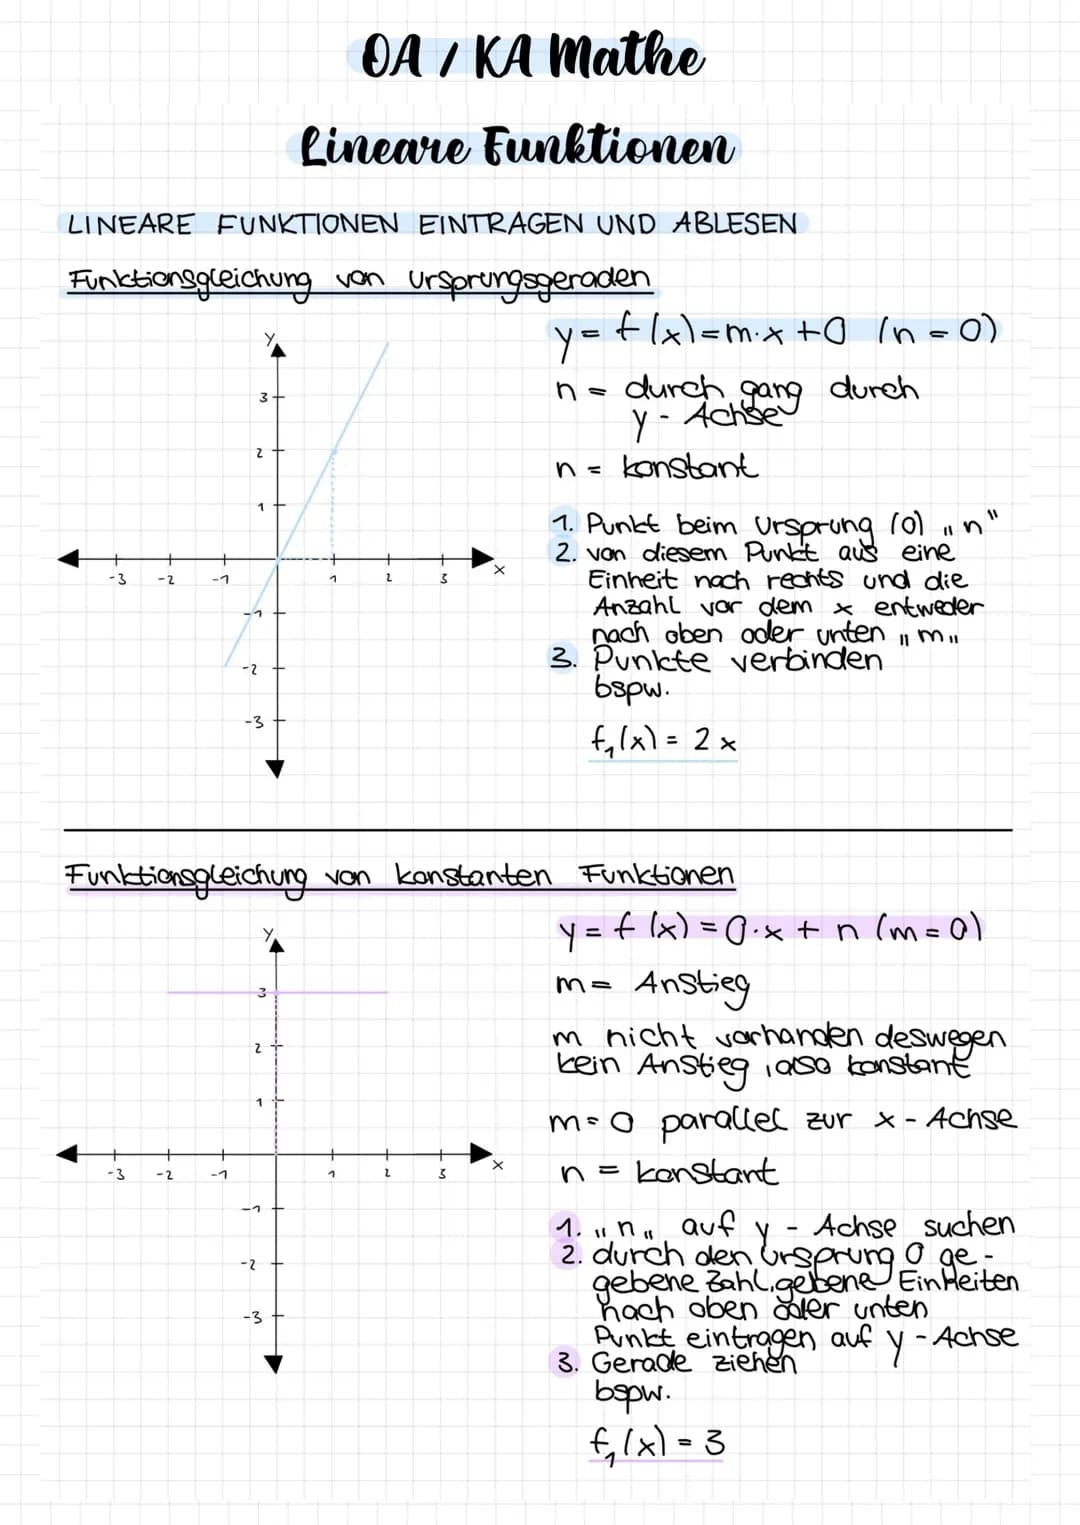 OA / KA Mathe
Lineare Funktionen
LINEARE FUNKTIONEN EINTRAGEN UND ABLESEN
Funktionsgleichung von Ursprungsgeraden
y = f(x) = m·x + 0 (n = 0)
n = durch gang durch
y - Achse
n = konstant
1. Punkt beim Ursprung (0) „n"
2. von diesem Punkt aus eine
Einheit nach rechts und die
Anzahl vor dem x entweder
nach oben oder unten „m„
3. Punkte verbinden
bspw.
f₁(x) = 2x
y
3
2
1
-3 -2 -1 1 2 3 x
-1
-2
-3
Funktionsgleichung von konstanten Funktionen
y = f(x) = 0·x + n (m = 0)
m = Anstieg
m nicht vorhanden deswegen
kein Anstieg, also konstant
m = 0 parallel zur x - Achse
n = konstant
1. „n„ auf y - Achse suchen
2. durch den Ursprung 0 ge-
gebene Zahl, gebene Einheiten
nach oben oder unten
Punkt eintragen auf y - Achse
3. Gerade ziehen
bspw.
f₁(x) = 3
y
3
2
1
-3 -2 -1 1 2 3 x
-1
-2
-3